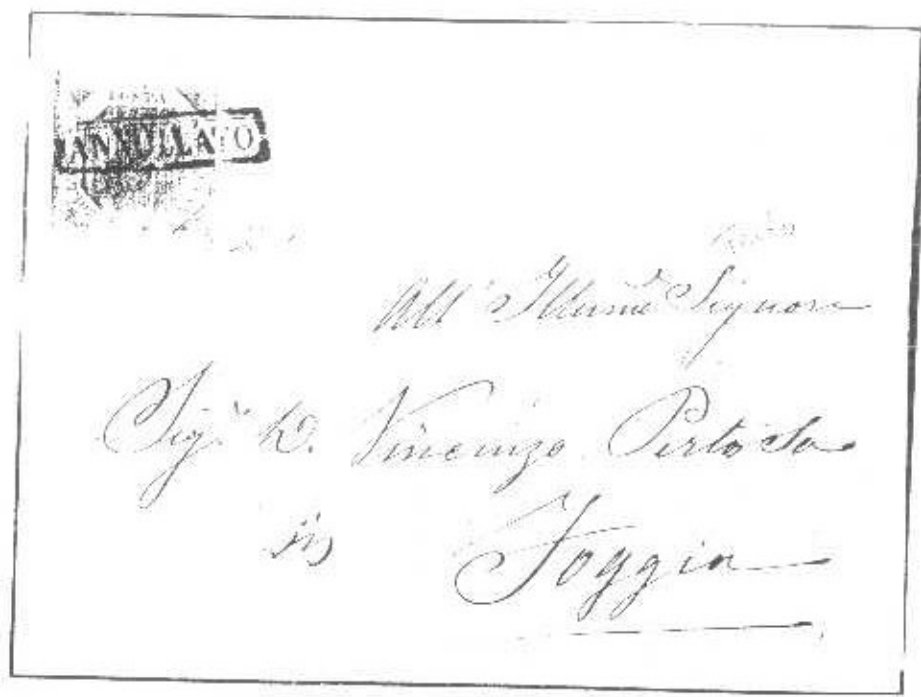 ANNULLATO
All' Illumo Signore
Sigr D. Vincenzo Pertosa
in Foggia